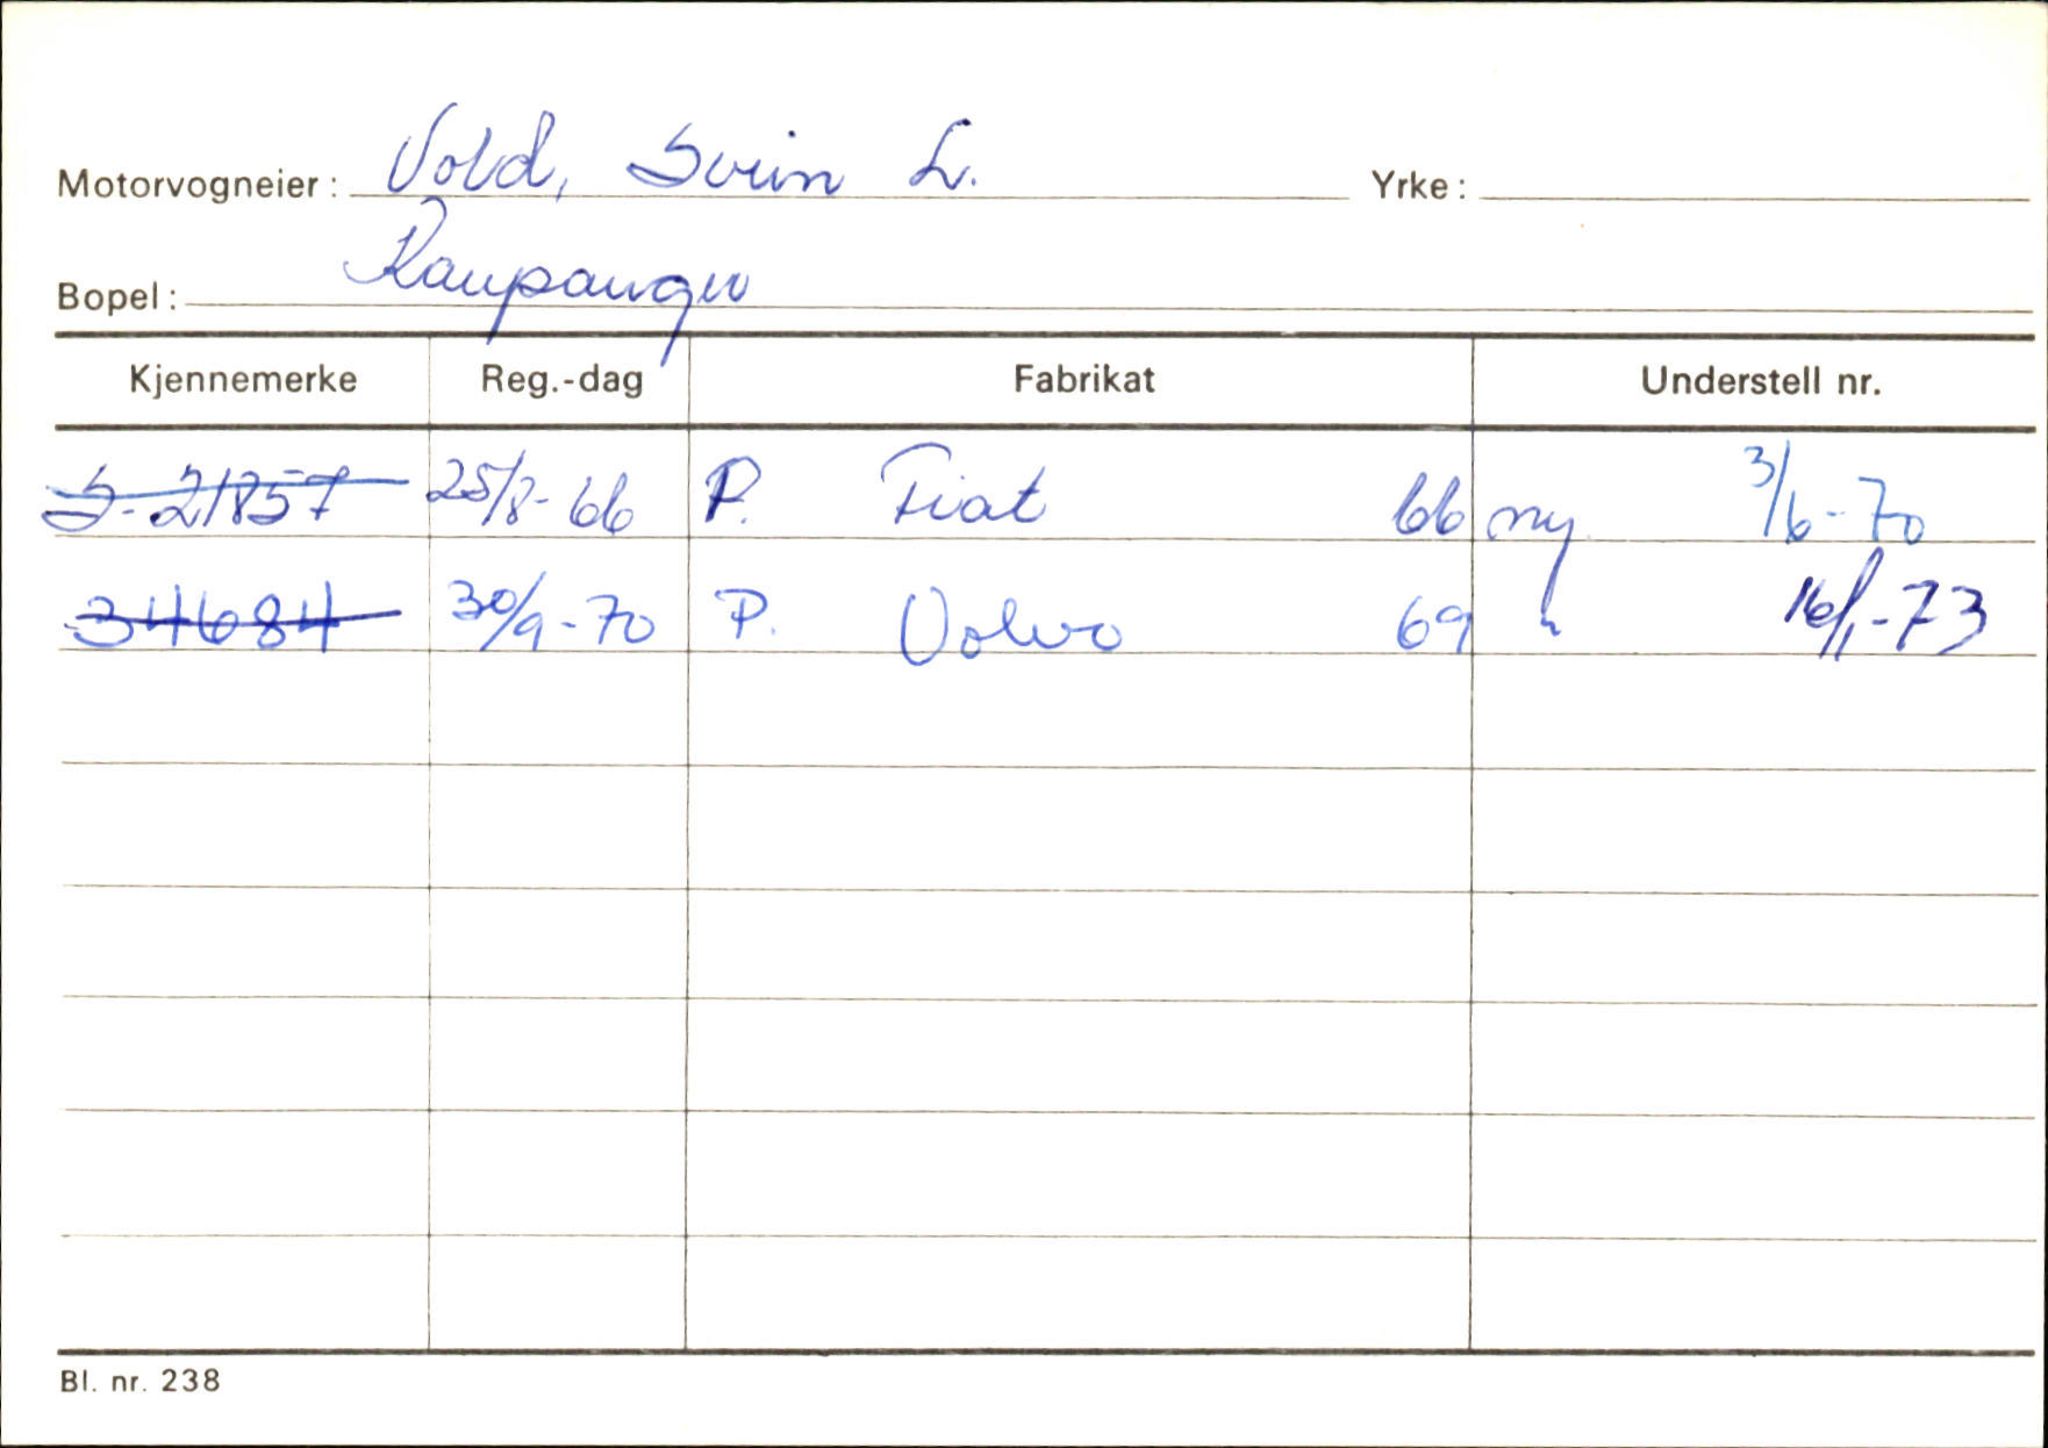 Motorvogneier: Vold, Svein L. Yrke:
Bopel: Kaupanger
Kjennemerke Reg.-dag Fabrikat Understell nr.
S-21857 25/8-66 P. Fiat 66 ny 3/6-70
34684 30/9-70 P. Volvo 69 " 16/1-73
Bl. nr. 238